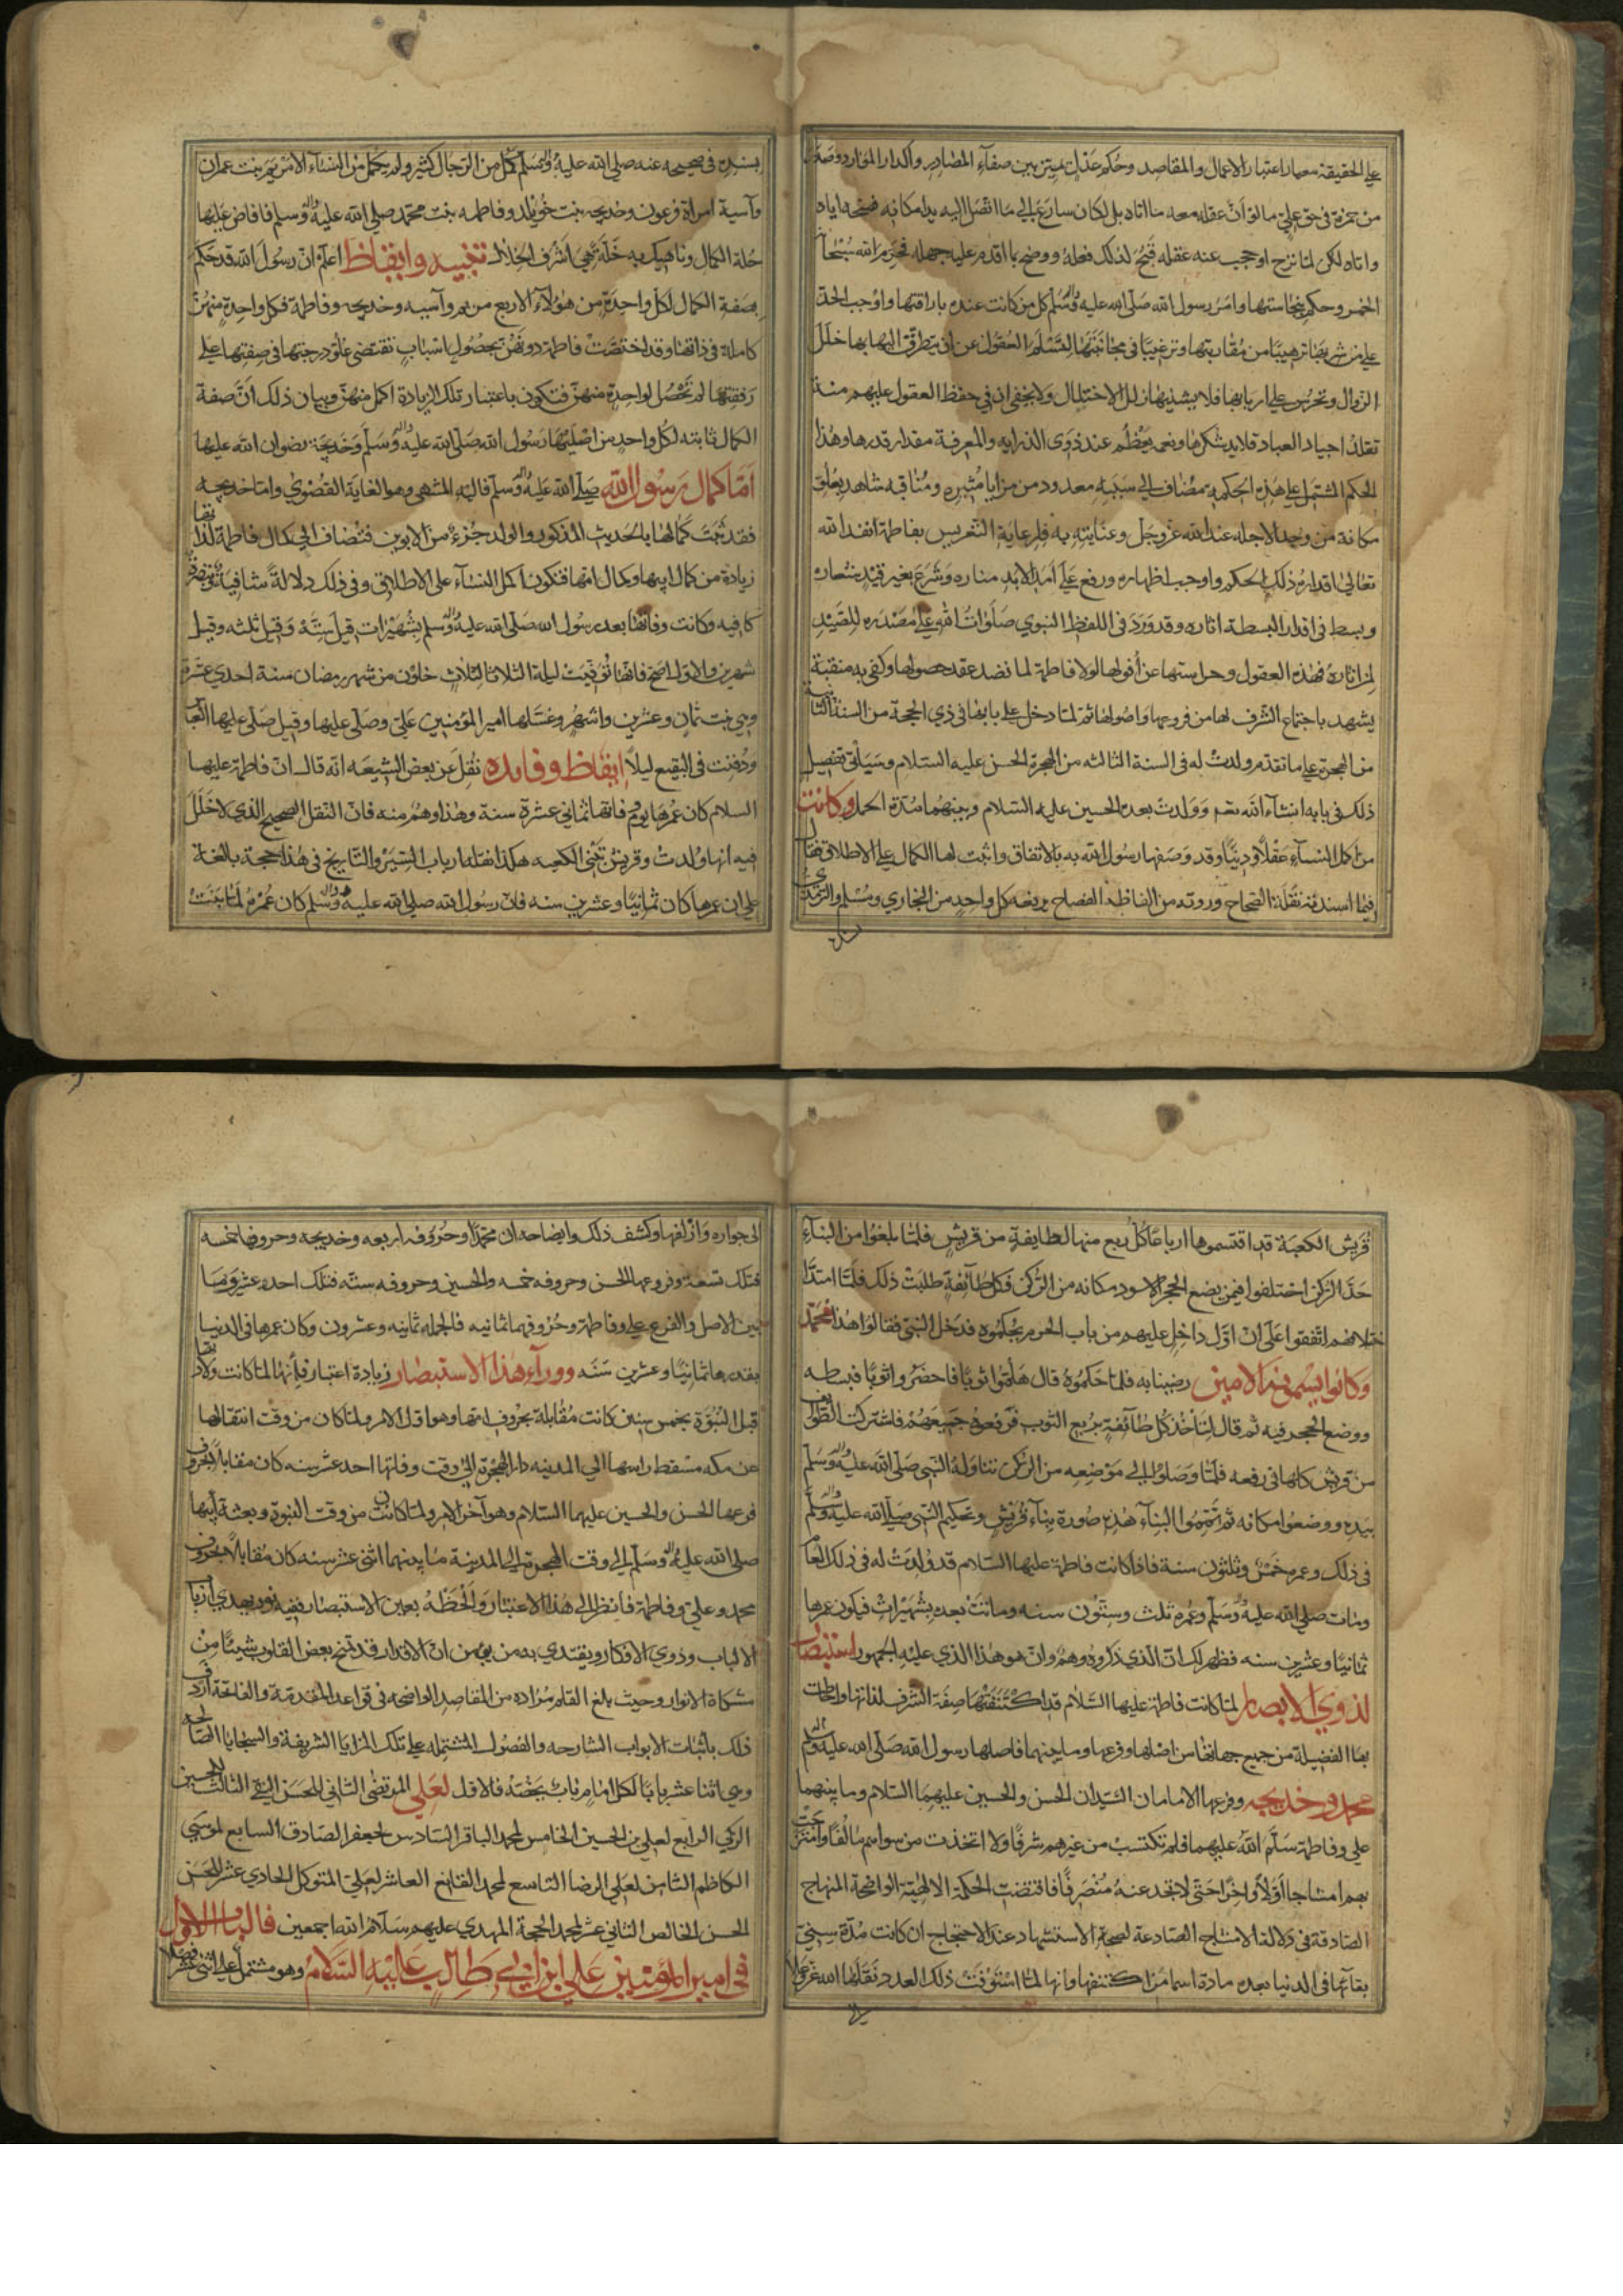 على الحقيقة معيار اعتبار الاعمال والمقاصد وحكم عدل يميّز بين صفآء المصادر واكدار الموارد وصد
من حمزة فى حق علىّ ما لو انّ عقله معه ما اتاه بل لكان سارع الى ما اتّصل اليه يد امكانه فمنحه اياه
واتاه لكن لما نزح او حجب عنه عقله قبح لذلك فعله ووضح با اقدم عليه جهله فحرّم الله سبحانه
الخمر وحكم بنجاستها وامر رسول الله صلّى الله عليه واله وسلّم كل من كانت عنده باراقتها واوجب الحدّ
على من شربها ترهيبا من مقاربتها وترغيبا فى مجانبتها لتسلم العقول عن ان يتطرّق اليها بها خلل
الزوال وتحرس على اربابها فلا يشذبها زلل الاختلال ولا يخفى ان فى حفظ العقول عليهم منة
تقلد اجياد العباد قلايد شكرها ونعمة يعظم عند ذوى الدرايه والمعرفة مقدار قدرها وهذا
الحكم المشتمل على هذه الحكم مضاف الى سببه معدود من مزايا مثيره ومناقبه شاهد بعلوّ
مكانة من وجد لاجله عند الله عزّ وجل وعنايته به فلرعاية التعريس بفاطمة انفد الله
تعالى اقداره ذلك الحكم واوجب اظهاره ورفع على امد الابد مناره وشرع بغير قيد شعاره
وبسط فى اقدار البسطة اثاره وقد ورد فى اللفظ النبوي صلوات الله على مصدره للصّيد
لمن اثاره فهذه العقول وحراستها عن افولها لولا فاطمة لما نضد عقد حصولها وكفى به منقبة
يشهد باجتماع الشرف لها من فروعها واصولها ثمّ لمّا دخل على بابها فى ذي الحجة من السنة الثانية
من الهجرة على ما تقدم ولدت له فى السنة الثالثه من الهجرة الحسن عليه السلام وسيأتى تفصيل
ذلك فى بابه انشآء الله تعم وولدت بعده الحسين عليه السّلام وبينهما مدّة الحمل وكانت
من اكمل النسآء عقلا ودينا وقد وصفها رسول الله به بالاتفاق واثبت لها الكمال على الاطلاق فقال
فيما اسندته نقلة الصحاح وروته من الفاظه الفصاح يرفعه كل واحد من البخاري ومسلم والترمذي
بسنده فى صحيحه عنه صلى الله عليه واله وسلم كمل من الرجال كثير ولم يكمل من النسآء الا مريم بنت عمران
وآسية امراة فرعون وخديجه بنت خويلد وفاطمه بنت محمّد صلى الله عليه واله وسلم فافاض عليها
حلة الكمال وناهيك به خلّة هى اشرف الخلال تنبيه وايقاظ اعلم ان رسول الله قد حكم
بصفة الكمال لكل واحدة من هؤلاء الاربع مريم وآسيه وخديجه وفاطمة فكل واحدة منهن
كاملة فى ذاتها وقد اختصت فاطمة دونهن بحصول اسباب تقتضى علوّ درجتها فى صفتها على
رفقتها لم تحصل لواحدة منهنّ فتكون باعتبار تلك الزيادة اكمل منهنّ وبيان ذلك انّ صفة
الكمال ثابته لكل واحد من اصليها رسول الله صلى الله عليه واله وسلم وخديجة رضوان الله عليها
امّا كمال رسول الله صلى الله عليه واله وسلم فاليه المنتهى وهو الغاية القصوي وامّا خديجه
فقد ثبت كمالها بالحديث المذكور والولد جزء من الابوين فتضاف الى كمال فاطمة لذاتها
زيادة من كمال ابيها وكمال امّها فتكون اكمل النسآء على الاطلاق وفى ذلك دلالة شافية وتبصرة
كافيه وكانت وفاتها بعد رسول الله صلى الله عليه واله وسلم بشهيرات قيل ستّة وقيل ثلثه وقيل
شهرين والاوّل اصح فانها توفيت ليلة الثلاثا لثلاث خلون من شهر رمضان سنة احدي عشرة
وهى بنت ثمان وعشرين واشهر وغسّلها امير المؤمنين علىّ وصلّى عليها وقيل صلّى عليها العباس
ودفنت فى البقيع ليلا ايقاظ وفايده نقل عن بعض الشيعه انّه قال انّ فاطمة عليها
السلام كان عمرها يوم فاتها ثمانى عشرة سنة وهذا وهم منه فانّ النقل الصحيح الذي لا خلل
فيه انها ولدت وقريش تبنى الكعبه هكذا نقله ارباب السّير والتاريخ فى هذا حجة بالغة
على ان عمرها كان ثمانيا وعشرين سنه فان رسول الله صلى الله عليه واله وسلم كان عمره لمّا بنت
قريش الكعبة قد اقتسموها ارباعا كل ربع منها لطايفة من قريش فلمّا بلغوا من البنآء
حذا الركن اختلفوا فيمن يضع الحجر الاسود مكانه من الركن فكل طآئفة طلبت ذلك فلمّا امتدّ
ختلافهم اتّفقوا على انّ اوّل داخل عليهم من باب الحرم يحكموه فدخل النبىّ فقالوا هذا محمّد
وكانوا يسمونه الامين رضينا به فلمّا حكموه قال هلمّوا ثوبا فاحضروا ثوبا فبسطه
ووضع الحجر فيه ثم قال لتأخذ كل طآئفة بربع الثوب فرفعوه جميعهم فاشتركت الطوايف
من قريش كلها فى رفعه فلمّا وصلوا الى موضعه من الركن تناوله النبى صلى الله عليه واله وسلم
بيده ووضعوا مكانه ثم تمموا البنآء هذه صورة بنآء قريش وتحكيم النبى صلى الله عليه واله وسلم
فى ذلك وعمره خمس وثلثون سنة فاذا كانت فاطمة عليها السلام قد ولدت له فى ذلك العام
ومات صلى الله عليه واله وسلم وعمره ثلث وستون سنه وماتت بعده بشهيرات فيكون عمرها
ثمانيا وعشرين سنه فظهر لك انّ الذي ذكروه وهم وانّ هو هذا الذي عليه الجمهور استبصار
لذوي الابصار لمّا كانت فاطمة عليها السّلام قد اكتنفتها صفة الشرف لذاتها واحاطت
بها الفضيلة من جميع جهاتها من اصلها وفرعها وما بينهما فاصلها رسول الله صلى الله عليه واله وسلم
محمد وخديجه وفرعها الامامان السّيدان الحسن والحسين عليهما السّلام وما بينهما
على وفاطمة سلم الله عليهما فلم تكتسب من غيرهم شرفا ولا اتخذت من سواهم مالفا وامتزجت
بهم امتشاجا اولا واخرا حتى لا تجد عنه منصرفا فاقتضت الحكمة الالهية الواضحة المنهاج
الصادقة فى دلالة الامشاج الصادعة لصحة الاستشهاد عند الاحتجاج ان كانت مدّة سنىّ
بقائها فى الدنيا بعده مادة اسما من اكتنفها وانها لمّا استوفت ذلك العدد نقلها الله عزّ وعلا
الى جواره وازلفها وكشف ذلك وايضاحه ان محمّدا وحروفه اربعه وخديجه وحروفها خمسه
فتلك تسعة وفروعها الحسن وحروفه خمسه والحسين وحروفه ستّه فتلك احد عشر وما
بين الاصل والفرع على وفاطمة وحروفهما ثمانيه فالجمله ثمانيه وعشرون وكان عمرها فى الدنيا
بقدرها ثمانيا وعشرين سنه ووراء هذا الاستبصار زيادة اعتبار فانها لمّا كانت ولادتها
قبل النبوّة بخمس سنين كانت مقابلة بحروف امّها وهو اوّل الامر ولمّا كان من وقت انتقالها
عن مكه مسقط راسها الى المدينه دار الهجرة الى وقت وفاتها احد عشر سنه كان مقابلا بحروف
فرعها الحسن والحسين عليهما السّلام وهو آخر الامر ولمّا كانت من وقت النبوة وبعثة ابيها
صلى الله عليه واله وسلم الى وقت الهجرة الى المدينة ما بينهما اثنى عشر سنه كان مقابلا بحروف
محمد وعلىّ وفاطمة فانظر الى هذا الاعتبار والحظه بعين الاستبصار ففيه نور يهدي ارباب
الالباب وذوي الافكار ويقتدي به من يؤمن انّ الاقدار قد تمنح بعض القلوب شيئا من
مشكاة الانوار وحيث بلغ القلم مراده من المقاصد الواضحه فى قواعد المقدمة والفاتحة اردف
ذلك باثبات الابواب الشارحه والفصول المشتمله على تلك المزايا الشريفة والسجايا الصالحه
وهى اثنا عشر بابا لكل امام باب يختصّه فالاوّل لعلي المرتضى الثانى للحسن التقى الثالث للحسين
الزكي الرابع لعلى بن الحسين الخامس لمحمد الباقر السّادس لجعفر الصادق السابع لموسى
الكاظم الثامن لعلى الرضا التاسع لمحمد القانع العاشر لعلىّ المتوكل الحادي عشر للحسن
الحسن الخالص الثانى عشر لمحمد الحجة المهدي عليهم سلام الله اجمعين فالباب الاول
فى امير المؤمنين على ابن ابي طالب عليه السلام وهو مشتمل على اثنى عشر فصلا